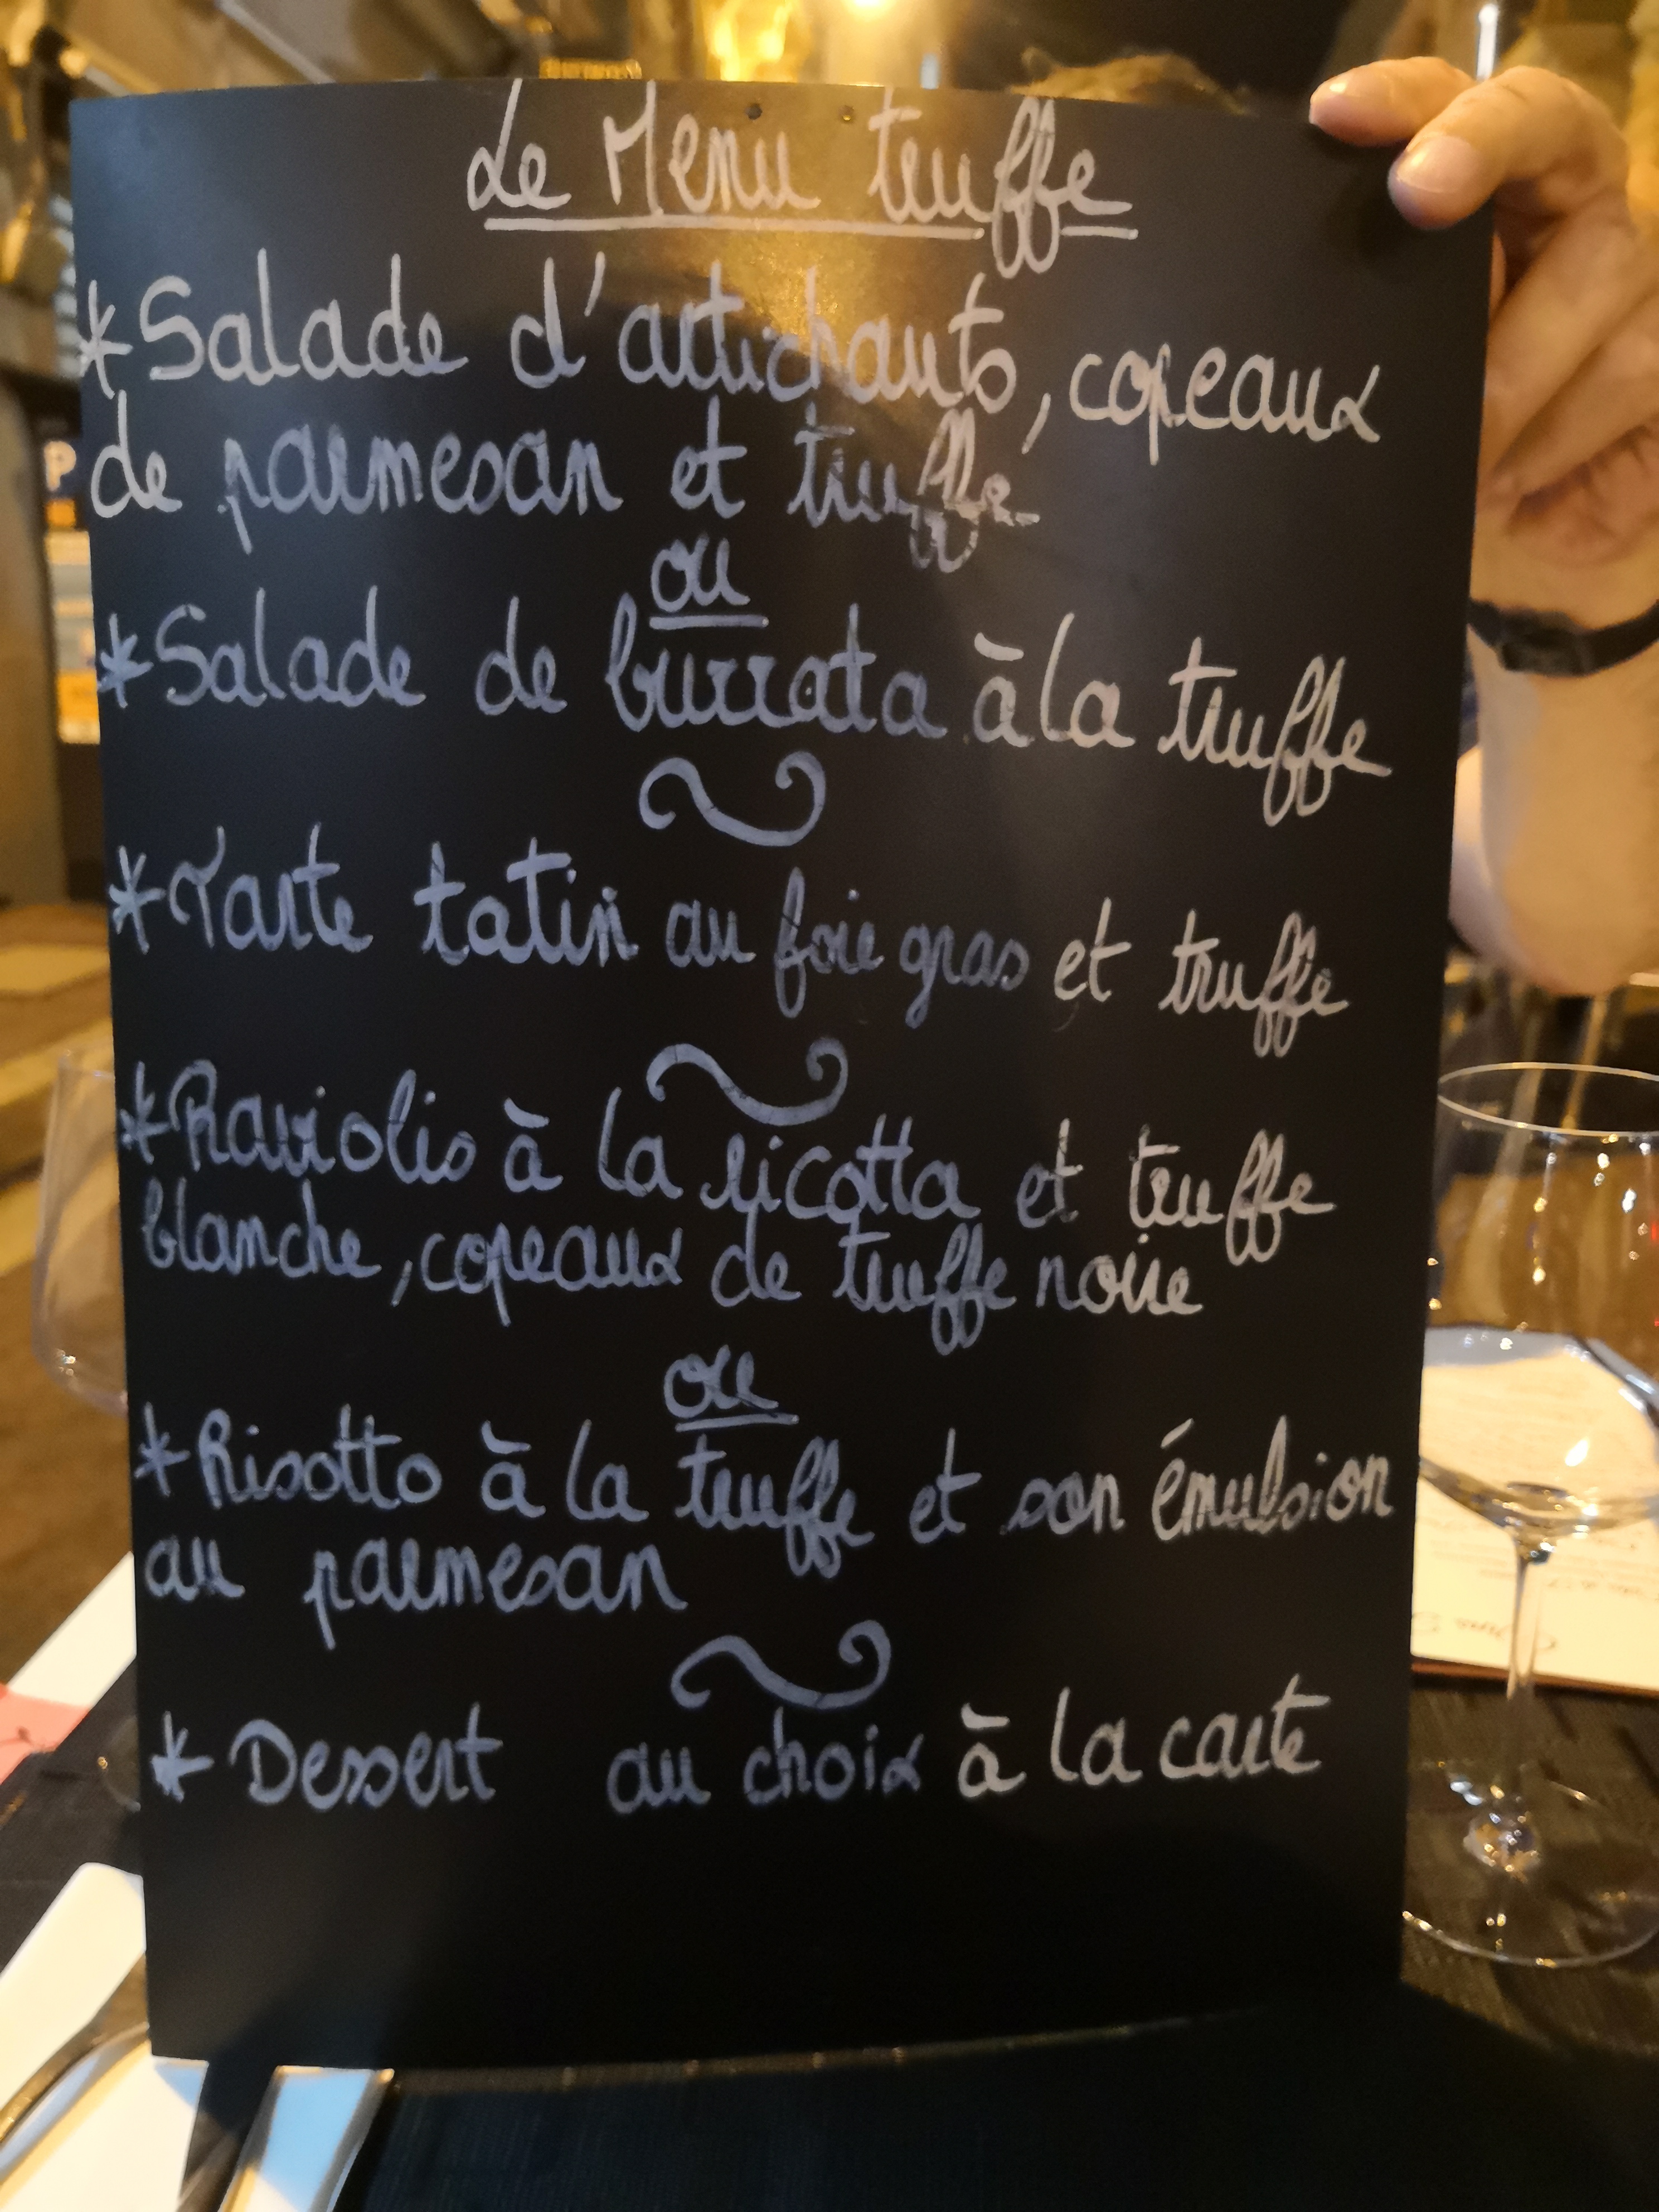 Le Menu truffe
*Salade d'artichauts, copeaux
de parmesan et truffe
ou
*Salade de burrata à la truffe
*Tarte tatin au foie gras et truffe
*Raviolis à la ricotta et truffe
blanche, copeaux de truffe noire
ou
*Risotto à la truffe et son émulsion
au parmesan
*Dessert au choix à la carte
P